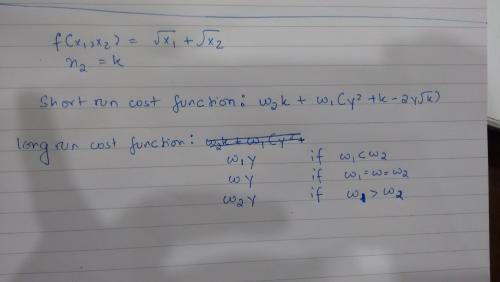 f(x₁,x₂) = √x₁ + √x₂
x₂ = k
Short run cost function: w₂k + w₁(y² + k - 2y√k)
Long run cost function: w₂k + w₁(y² +
w₁y if w₁<w₂
wy if w₁=w=w₂
w₂y if w₁>w₂